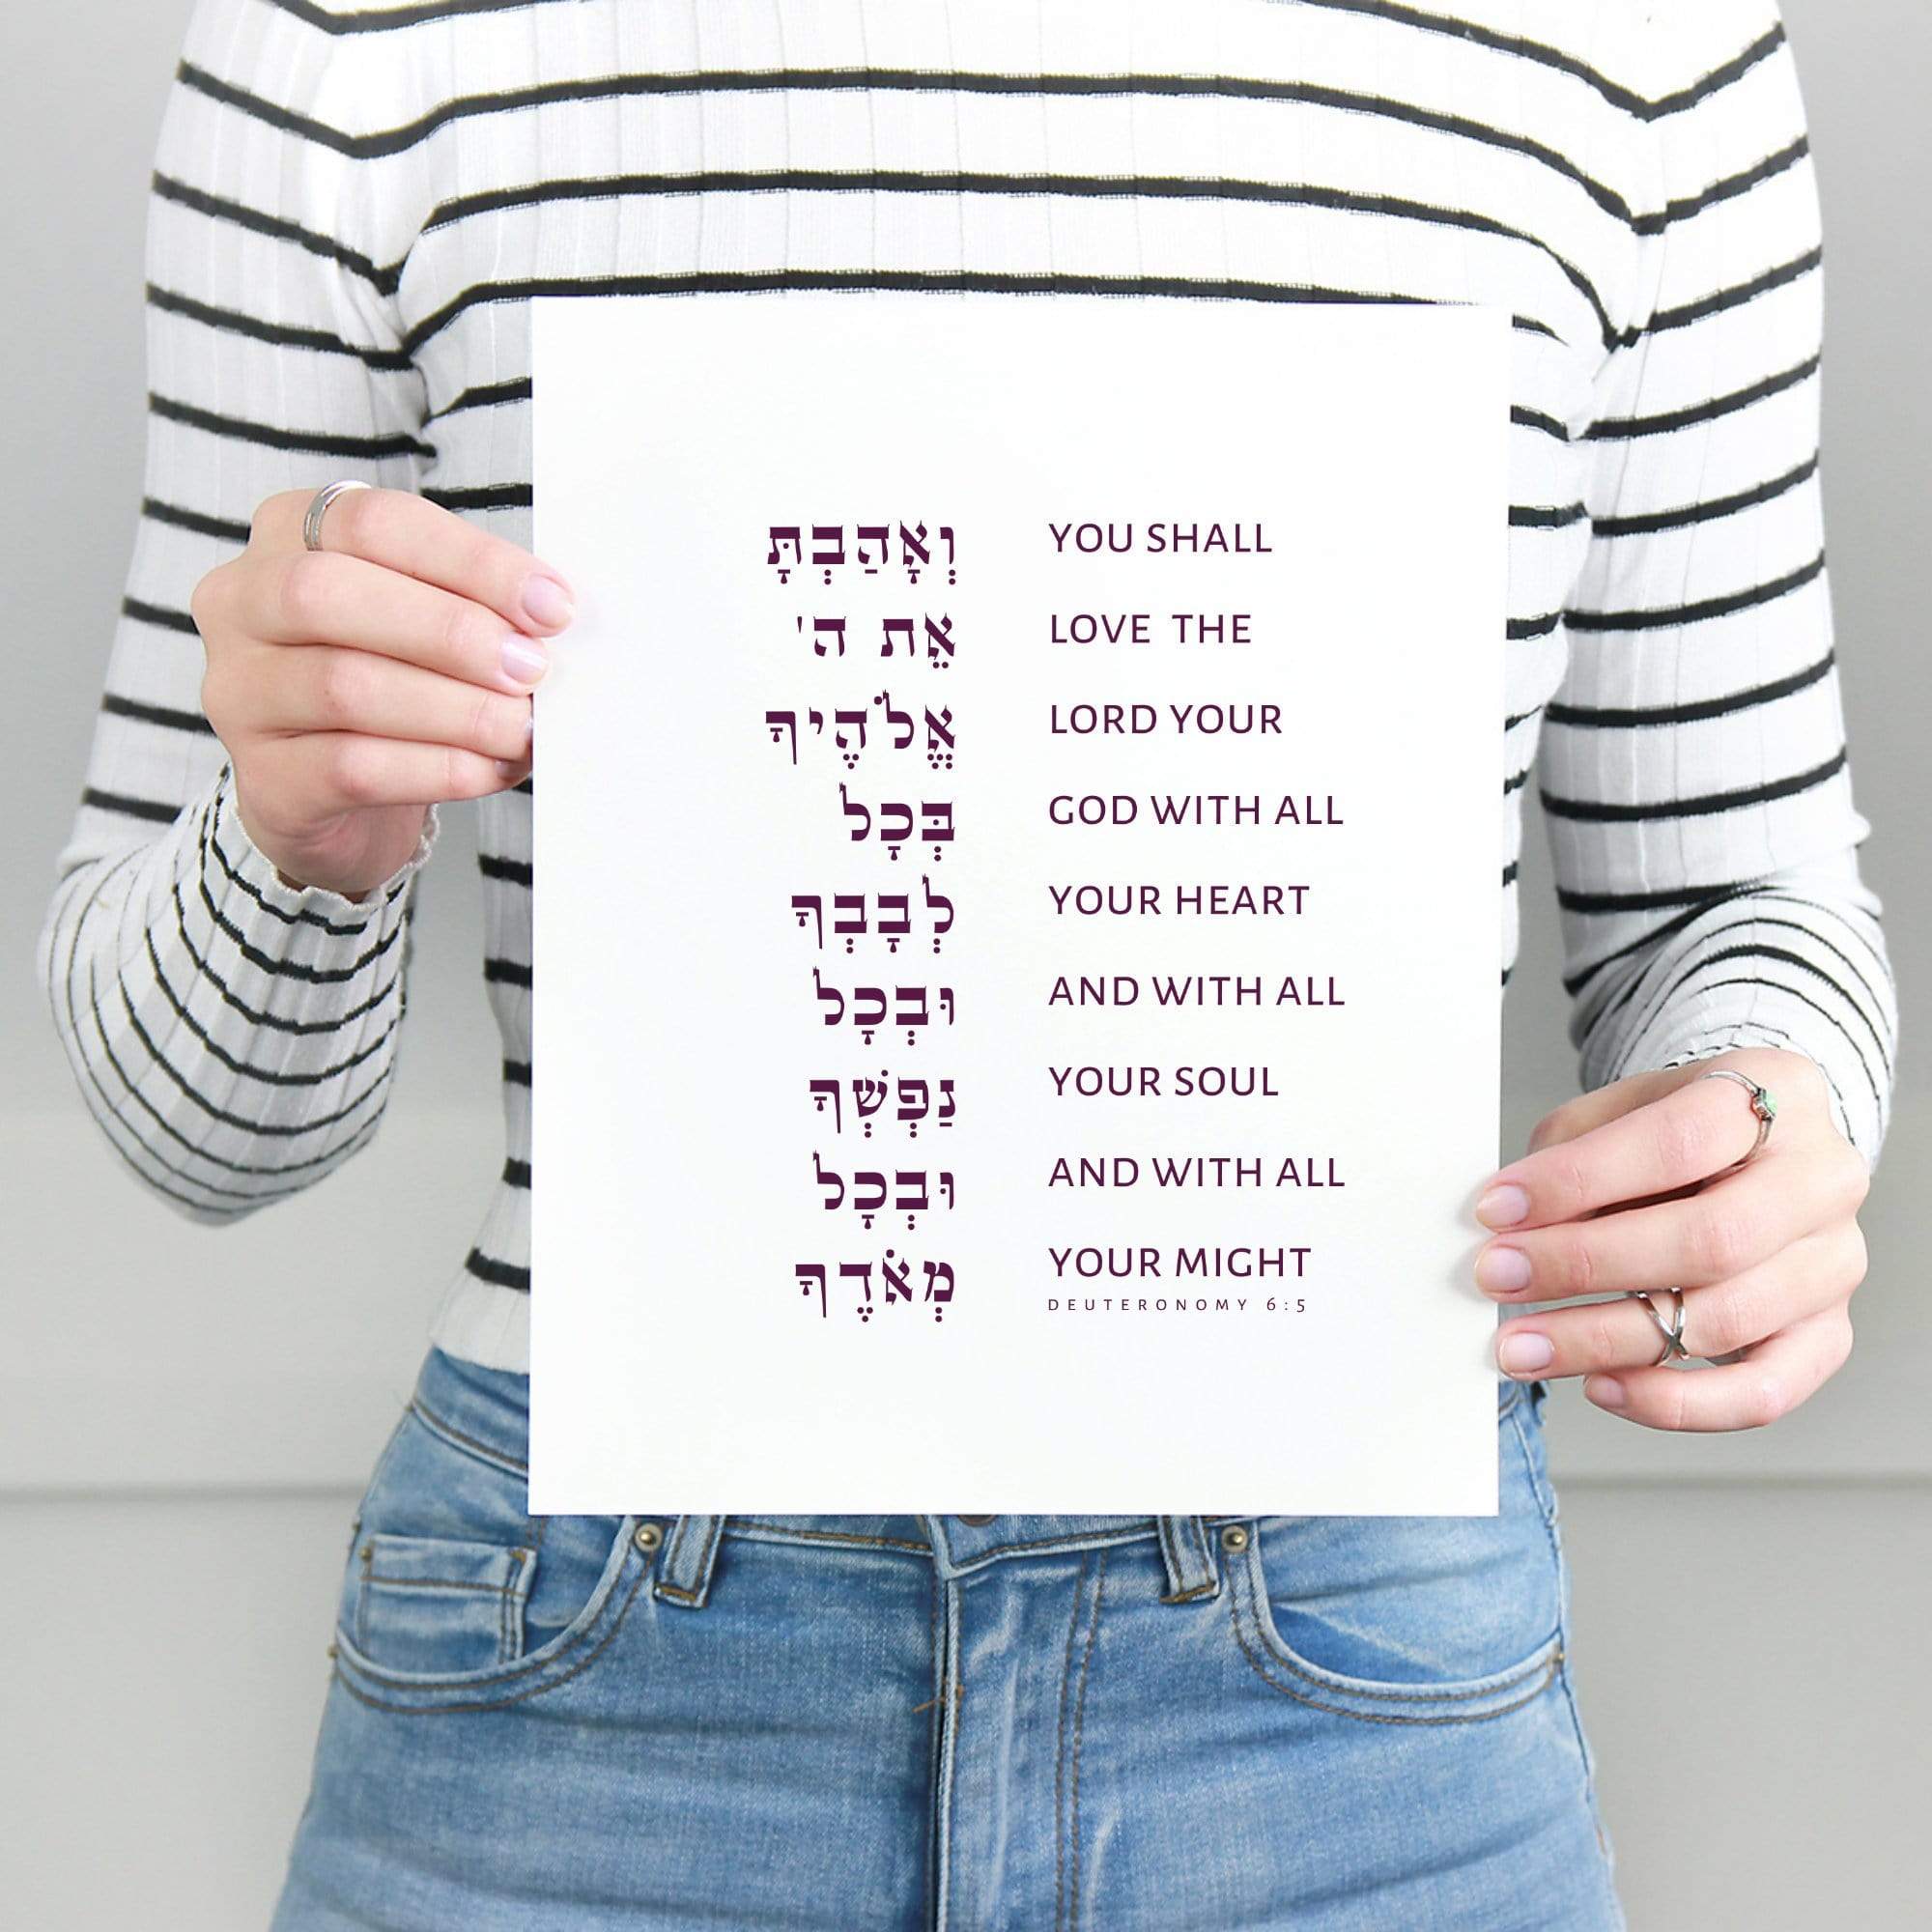 וְאָהַבְתָּ
אֵת ה'
אֱלֹהֶיךָ
בְּכָל
לְבָבְךָ
וּבְכָל
נַפְשְׁךָ
וּבְכָל
מְאֹדֶךָ
YOU SHALL
LOVE THE
LORD YOUR
GOD WITH ALL
YOUR HEART
AND WITH ALL
YOUR SOUL
AND WITH ALL
YOUR MIGHT
DEUTERONOMY 6:5